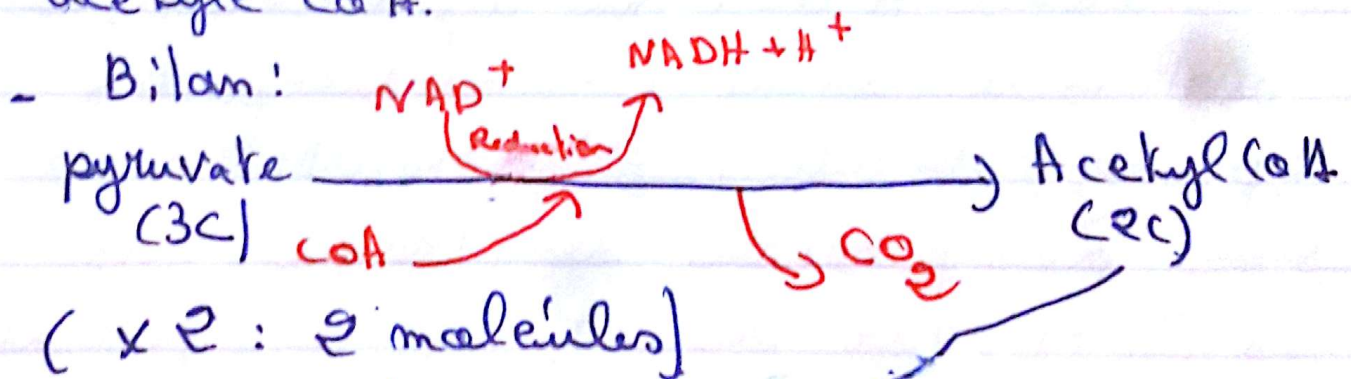 acétyle CoA.
- Bilan:
NAD⁺ NADH + H⁺
Reduction
pyruvate Acetyl CoA
(3C) (2C)
COA CO₂
( x 2 : 2 molécules)